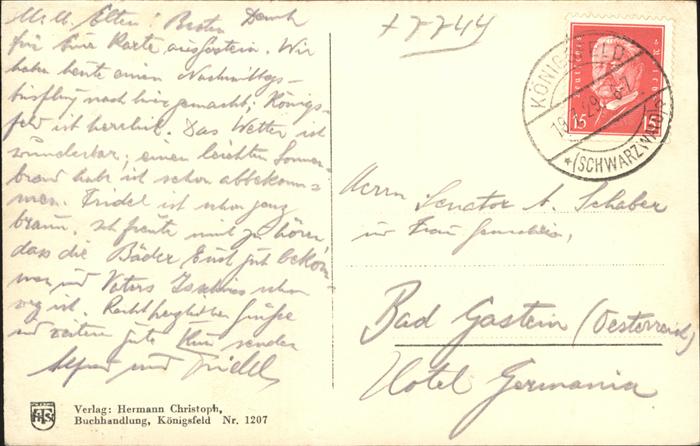 M. l. Eltern! Besten Dank
für Eure Karte aus Gastein. Wir
haben heute einen Nachmittags-
ausflug nach hier gemacht; Königs-
feld ist herrlich. Das Wetter ist
wunderbar; einen leichten Sonnen-
brand hab ich schon abbekom-
men. Fridel ist schon ganz
braun. Ich freute mich zu hören,
dass die Bäder Euch gut bekom-
men und Vaters Ischias schon
weg ist. Recht herzliche Grüße
und weitere gute Kur senden
Alfred und Fridel
+2244
Deutsches Reich
15 15
KÖNIGSFELD
19. 29. 6-7
* (SCHWARZWALD)
Herrn Senator A. Schaber
und Frau Gemahlin,
Bad Gastein (Oesterreich)
Hotel Germania
Verlag: Hermann Christoph,
Buchhandlung, Königsfeld Nr. 1207